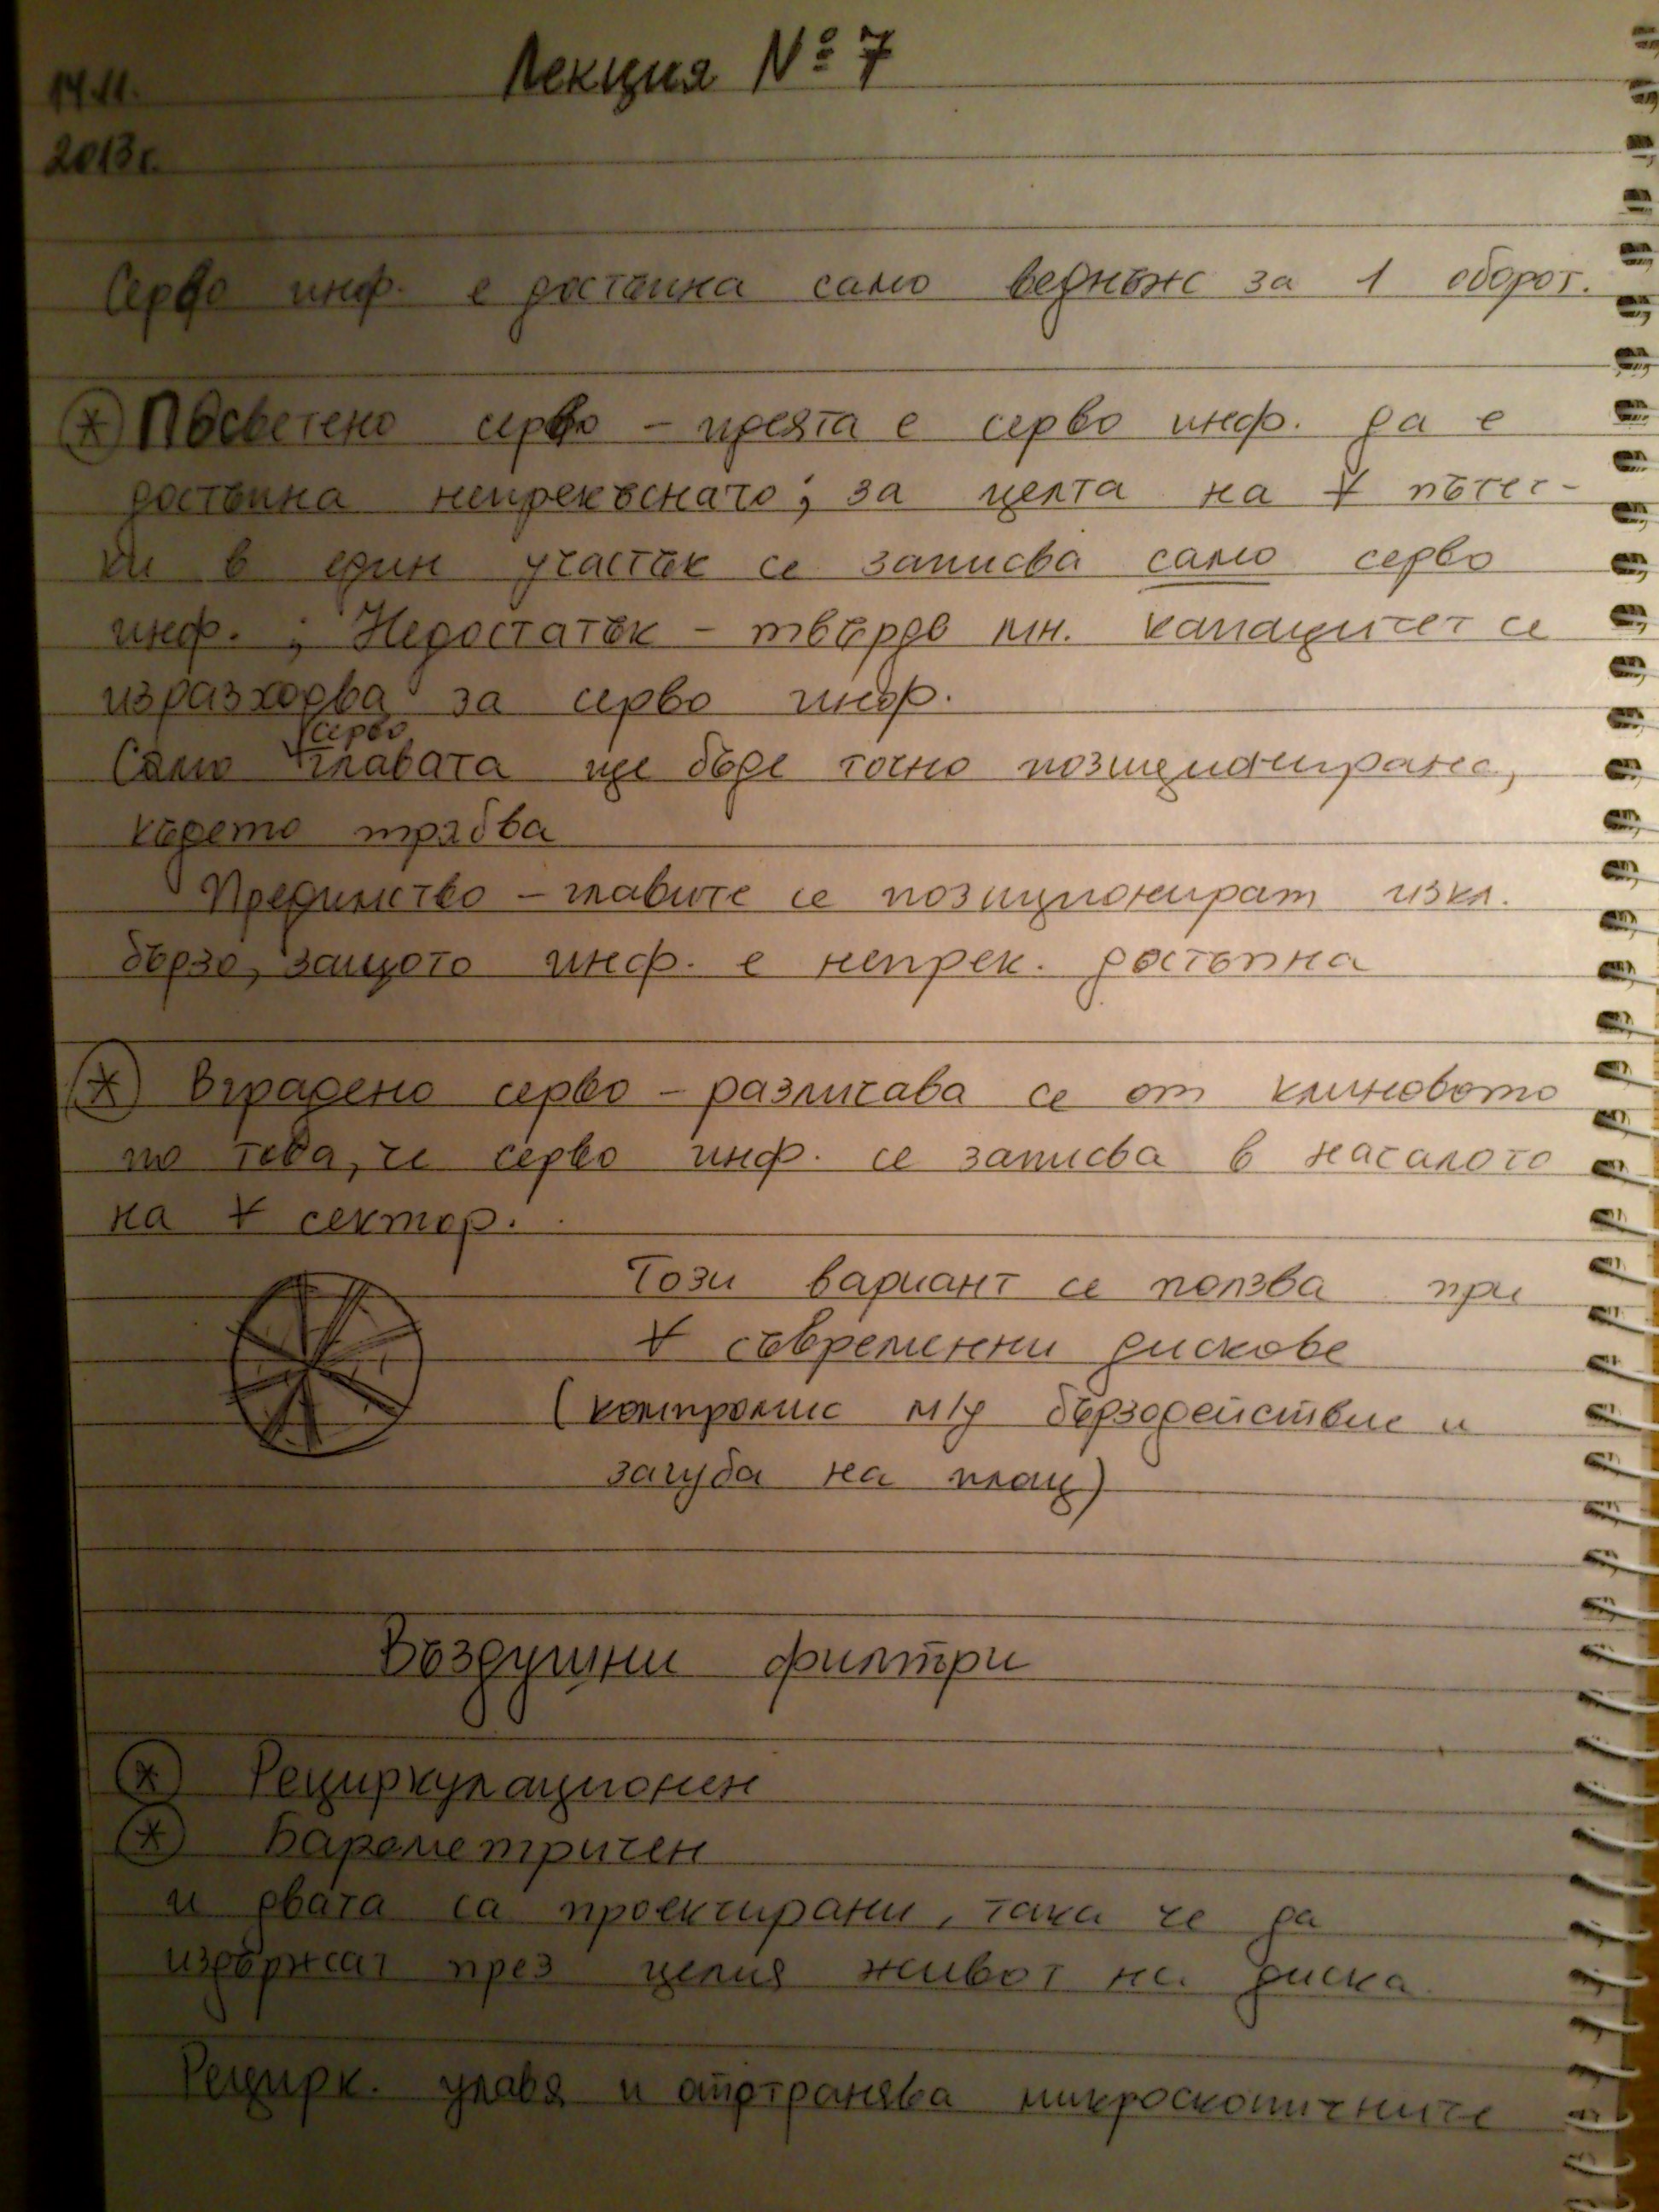 Лекция № 7
14.11.
2013г.
Серво инф. е достъпна само веднъж за 1 оборот.
* Посветено серво – идеята е серво инф. да е
достъпна непрекъснато; за целта на ∀ пътеч-
ки в един участък се записва само серво
инф. ; Недостатък – твърде мн. капацитет се
изразходва за серво инф.
серво
Само главата ще бъде точно позиционирана,
където трябва
Предимство – главите се позиционират изкл.
бързо, защото инф. е непрек. достъпна
* Вградено серво – различава се от клиновото
по това, че серво инф. се записва в началото
на ∀ сектор.
Този вариант се ползва при
∀ съвременни дискове
(компромис м/у бързодействие и
загуба на площ)
Въздушни филтри
* Рециркулационен
* Барометричен
и двата са проектирани, така че да
издържат през целия живот на диска
Рецирк. улавя и отстранява микроскопичните